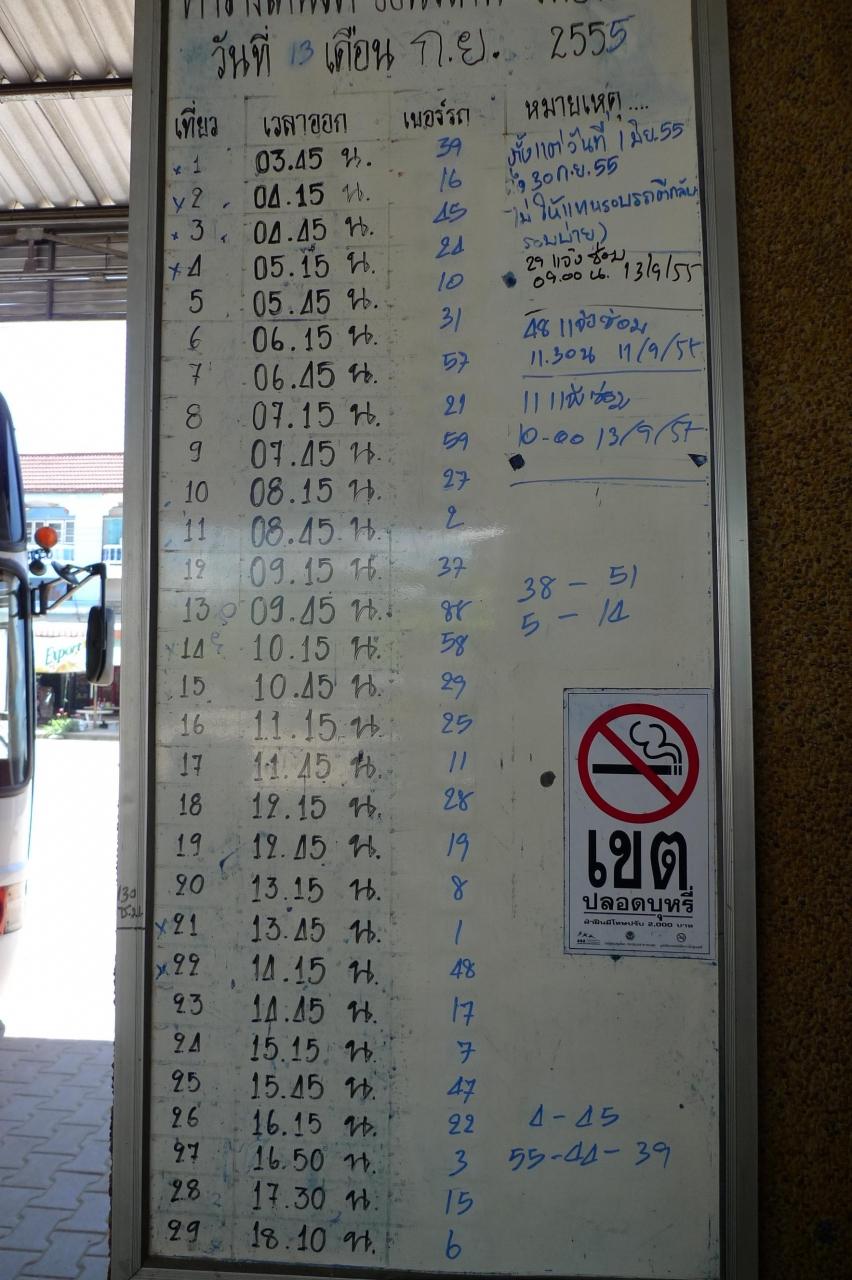 วันที่ 13 เดือน ก.ย. 2555
เที่ยว เวลาออก เบอร์รถ หมายเหตุ....
x 1 03.45 น. 39
x 2 04.15 น. 16
x 3 04.45 น. 45
x 4 05.15 น. 24
5 05.45 น. 10
6 06.15 น. 31
7 06.45 น. 57
8 07.15 น. 21
9 07.45 น. 59
10 08.15 น. 27
11 08.45 น. 2
12 09.15 น. 37
13 09.45 น. 88
x 14 10.15 น. 58
15 10.45 น. 29
16 11.15 น. 25
17 11.45 น. 11
18 12.15 น. 28
19 12.45 น. 19
20 13.15 น. 8
x 21 13.45 น. 1
x 22 14.15 น. 48
23 14.45 น. 17
24 15.15 น. 7
25 15.45 น. 47
26 16.15 น. 22
27 16.50 น. 3
28 17.30 น. 15
29 18.10 น. 6
ตั้งแต่วันที่ 1 มิย.55
30 ก.ย. 55
29 แจ้งซ่อม
09.00 น. 13/9/55
48 แจ้งซ่อม
11.30น 11/9/55
11 แจ้งซ่อม
10-00 13/9/55
38 - 51
5 - 14
4 - 45
55-44- 39
เขต
ปลอดบุหรี่
ฝ่าฝืนมีโทษปรับ 2,000 บาท
Export